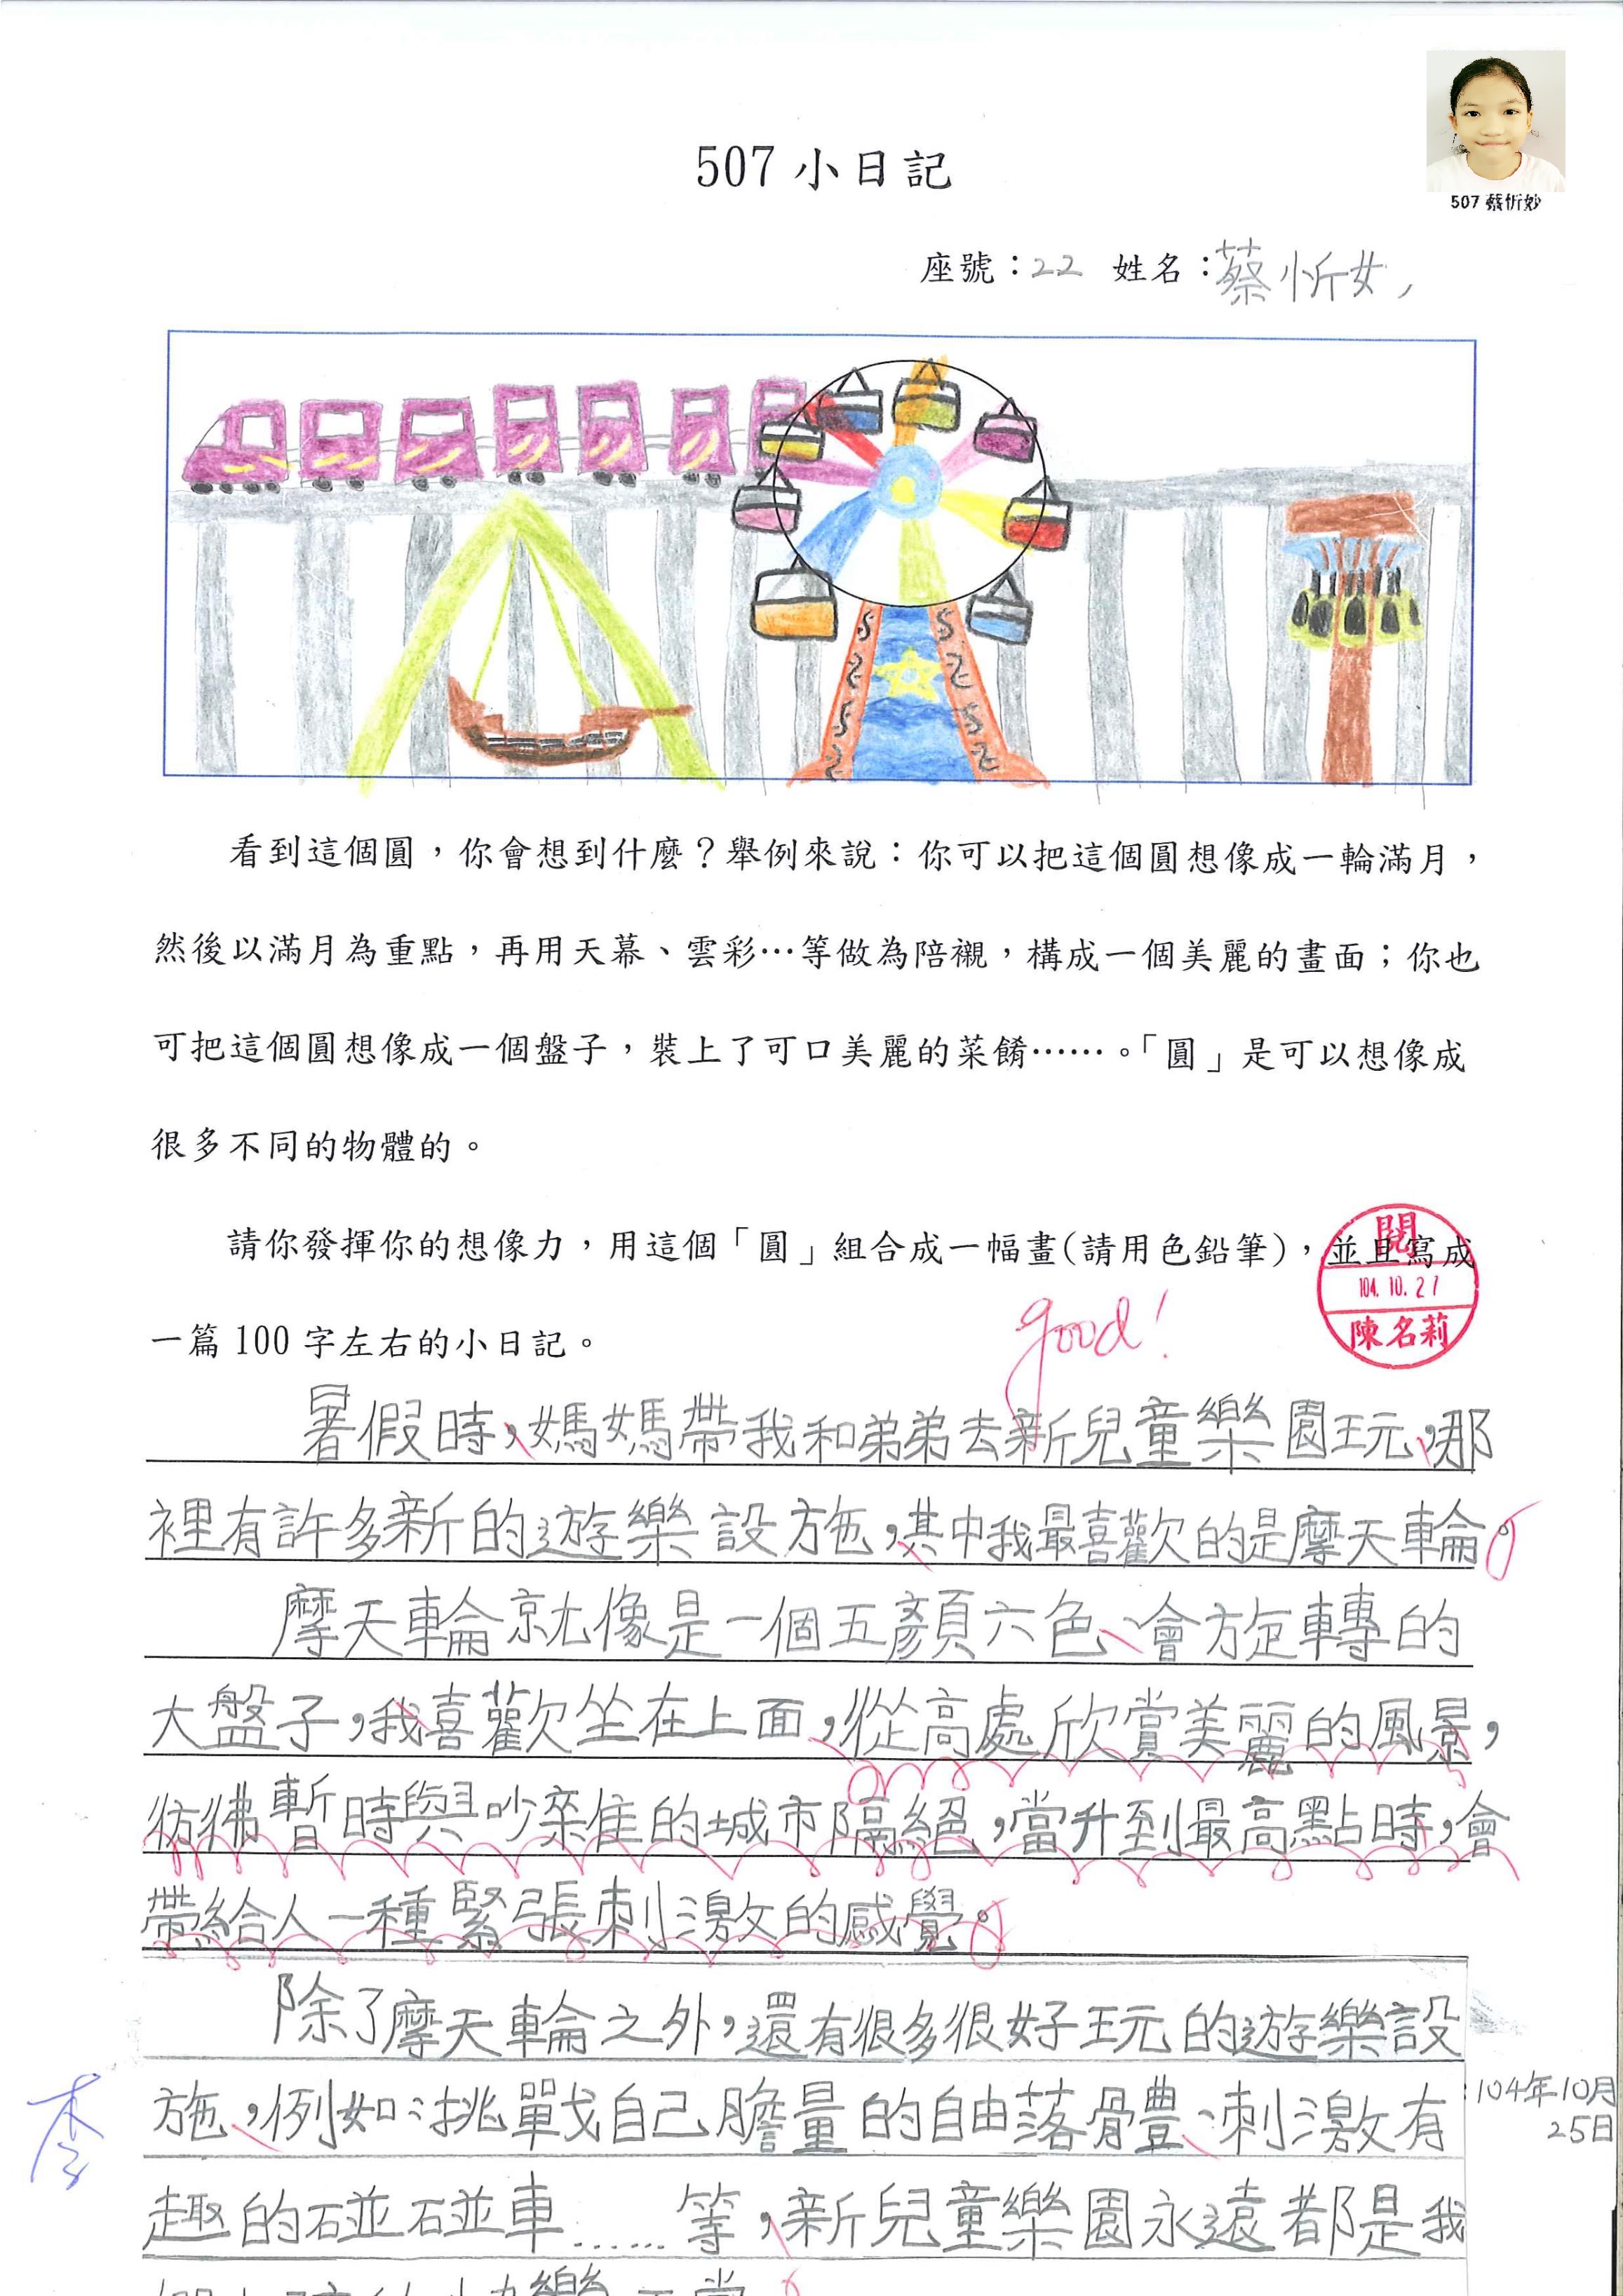 507 小日記
507 蔡忻妙
座號：22 姓名：蔡忻妙
看到這個圓，你會想到什麼？舉例來說：你可以把這個圓想像成一輪滿月，
然後以滿月為重點，再用天幕、雲彩…等做為陪襯，構成一個美麗的畫面；你也
可把這個圓想像成一個盤子，裝上了可口美麗的菜餚……。「圓」是可以想像成
很多不同的物體的。
請你發揮你的想像力，用這個「圓」組合成一幅畫(請用色鉛筆)，並且寫成
一篇 100 字左右的小日記。
閱
104.10.27
陳名莉
good!
暑假時，媽媽帶我和弟弟去新兒童樂園玩，那
裡有許多新的遊樂設施，其中我最喜歡的是摩天輪。
摩天輪就像是一個五顏六色、會旋轉的
大盤子，我喜歡坐在上面，從高處欣賞美麗的風景，
彷彿暫時與吵雜的城市隔絕，當升到最高點時，會
帶給人一種緊張刺激的感覺。
除了摩天輪之外，還有很多很好玩的遊樂設
施，例如：挑戰自己膽量的自由落體、刺激有
趣的碰碰車……等，新兒童樂園永遠都是我
104年10月
25日
李